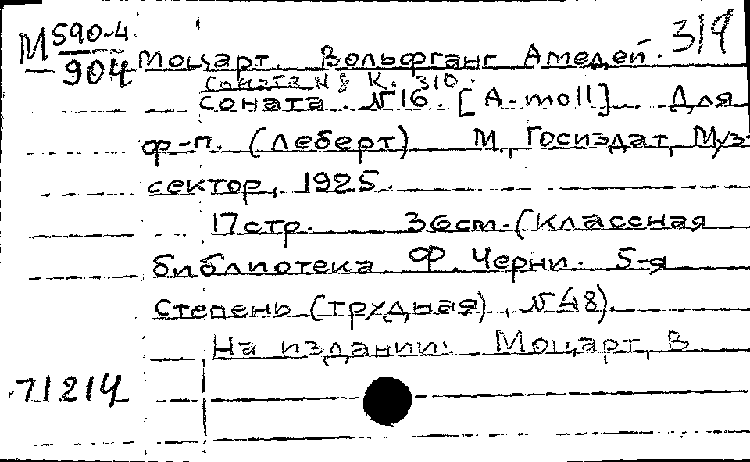 М 590-4 / 904
319
Моцарт. Вольфганг Амедей.
Соната № 8 К. 310.
Соната №16. [A-moll]. Для
ф-п. (Леберт) М., Госиздат, Муз-
сектор, 1925.
17 стр. 36 cm. (Классная
библиотека Ф. Черни. 5-я
степень (трудная), №48).
На издании: Моцарт, В
71214